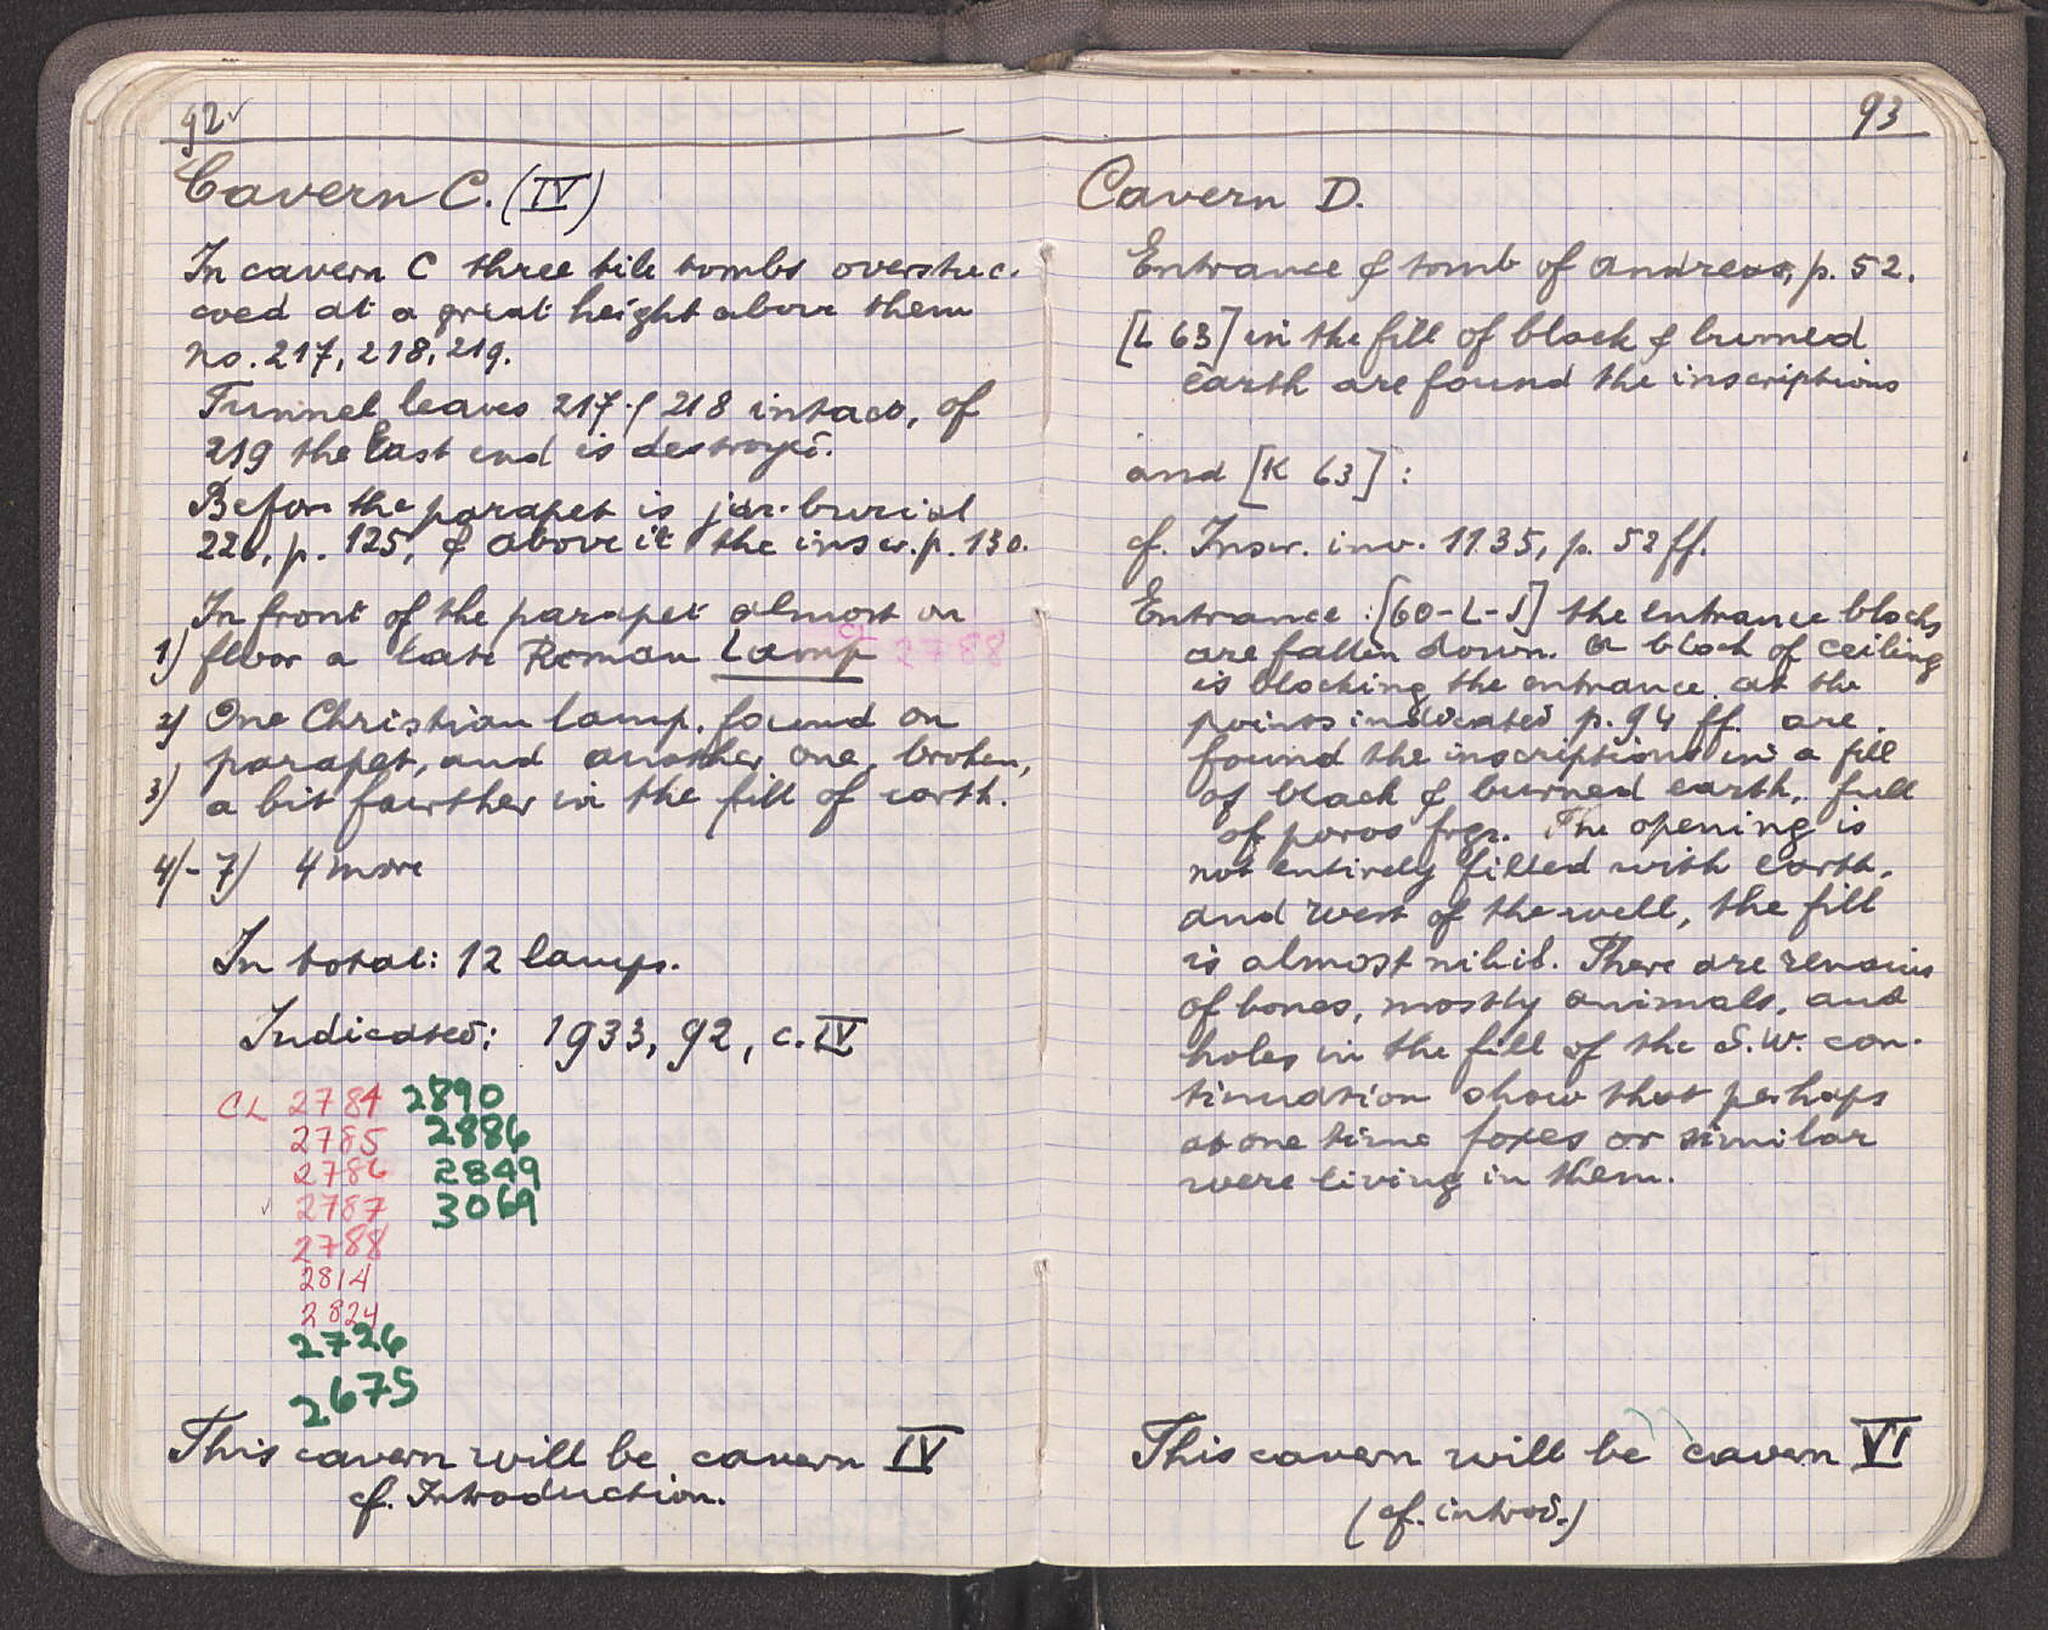 92
Cavern C. (IV)
In cavern C three tile tombs overstuc.
coed at a great height above them
no. 217, 218, 219.
Tunnel leaves 217 & 218 intact, of
219 the East end is destroyed.
Before the parapet is jar-burial
220, p. 125, & above it the inscr. p. 130.
In front of the parapet almost on
1) floor a late Roman Lamp CL 2788
2) One Christian lamp, found on
parapet, and another one, broken,
3) a bit fourther in the fill of earth.
4)-7) 4 more
In total: 12 lamps.
Indicated: 1933, 92, c. IV
CL 2784 2890
2785 2886
2786 2849
2787 3069
2788
2814
2824
2726
2675
This cavern will be cavern IV
cf. Introduction.
93
Cavern D.
Entrance & tomb of Andreas, p. 52.
[L 63] in the fill of black & burned
earth are found the inscriptions
and [K 63]:
cf. Inscr. inv. 1135, p. 52 ff.
Entrance: [60-L-J] the entrance blocks
are fallen down. A block of ceiling
is blocking the entrance. At the
points indicated p. 94 ff. are
found the inscriptions in a fill
of black & burned earth, full
of poros frgs. The opening is
not entirely filled with earth,
and west of the well, the fill
is almost nihil. There are remains
of bones, mostly animals, and
holes in the fill of the S.W. con-
tinuation show that perhaps
at one time foxes or similar
were living in them.
This cavern will be cavern VI
(cf. introd.)